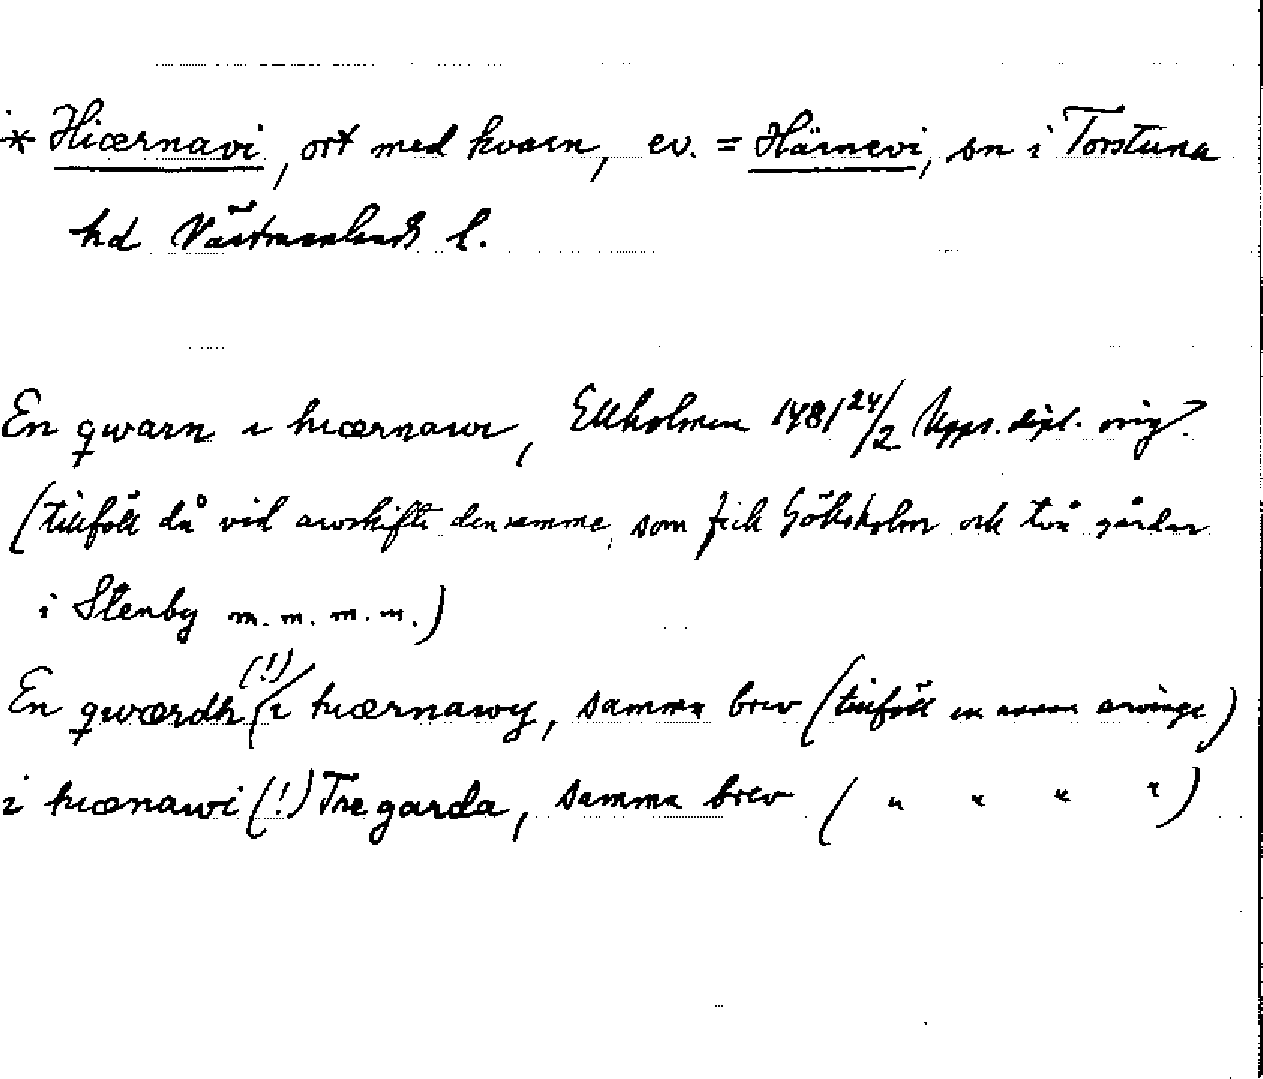 * Hiærnavi, ort med kvarn, ev. = Härnevi, sn i Torstuna
hd Västmanlands l.
En qwarn i hiærnawi, Ekholmen 1481 24/2 Upps. dipl. orig.
(tillföll då vid arvskifte densamme, som fick Göksholm och två gårdar
i Stenby m. m. m. m.)
En qwærdh (!) / i hiærnawy, samma brev (tillföll en annan arvinge)
i hiænawi (!) Tre garda, samma brev ( " " " " )